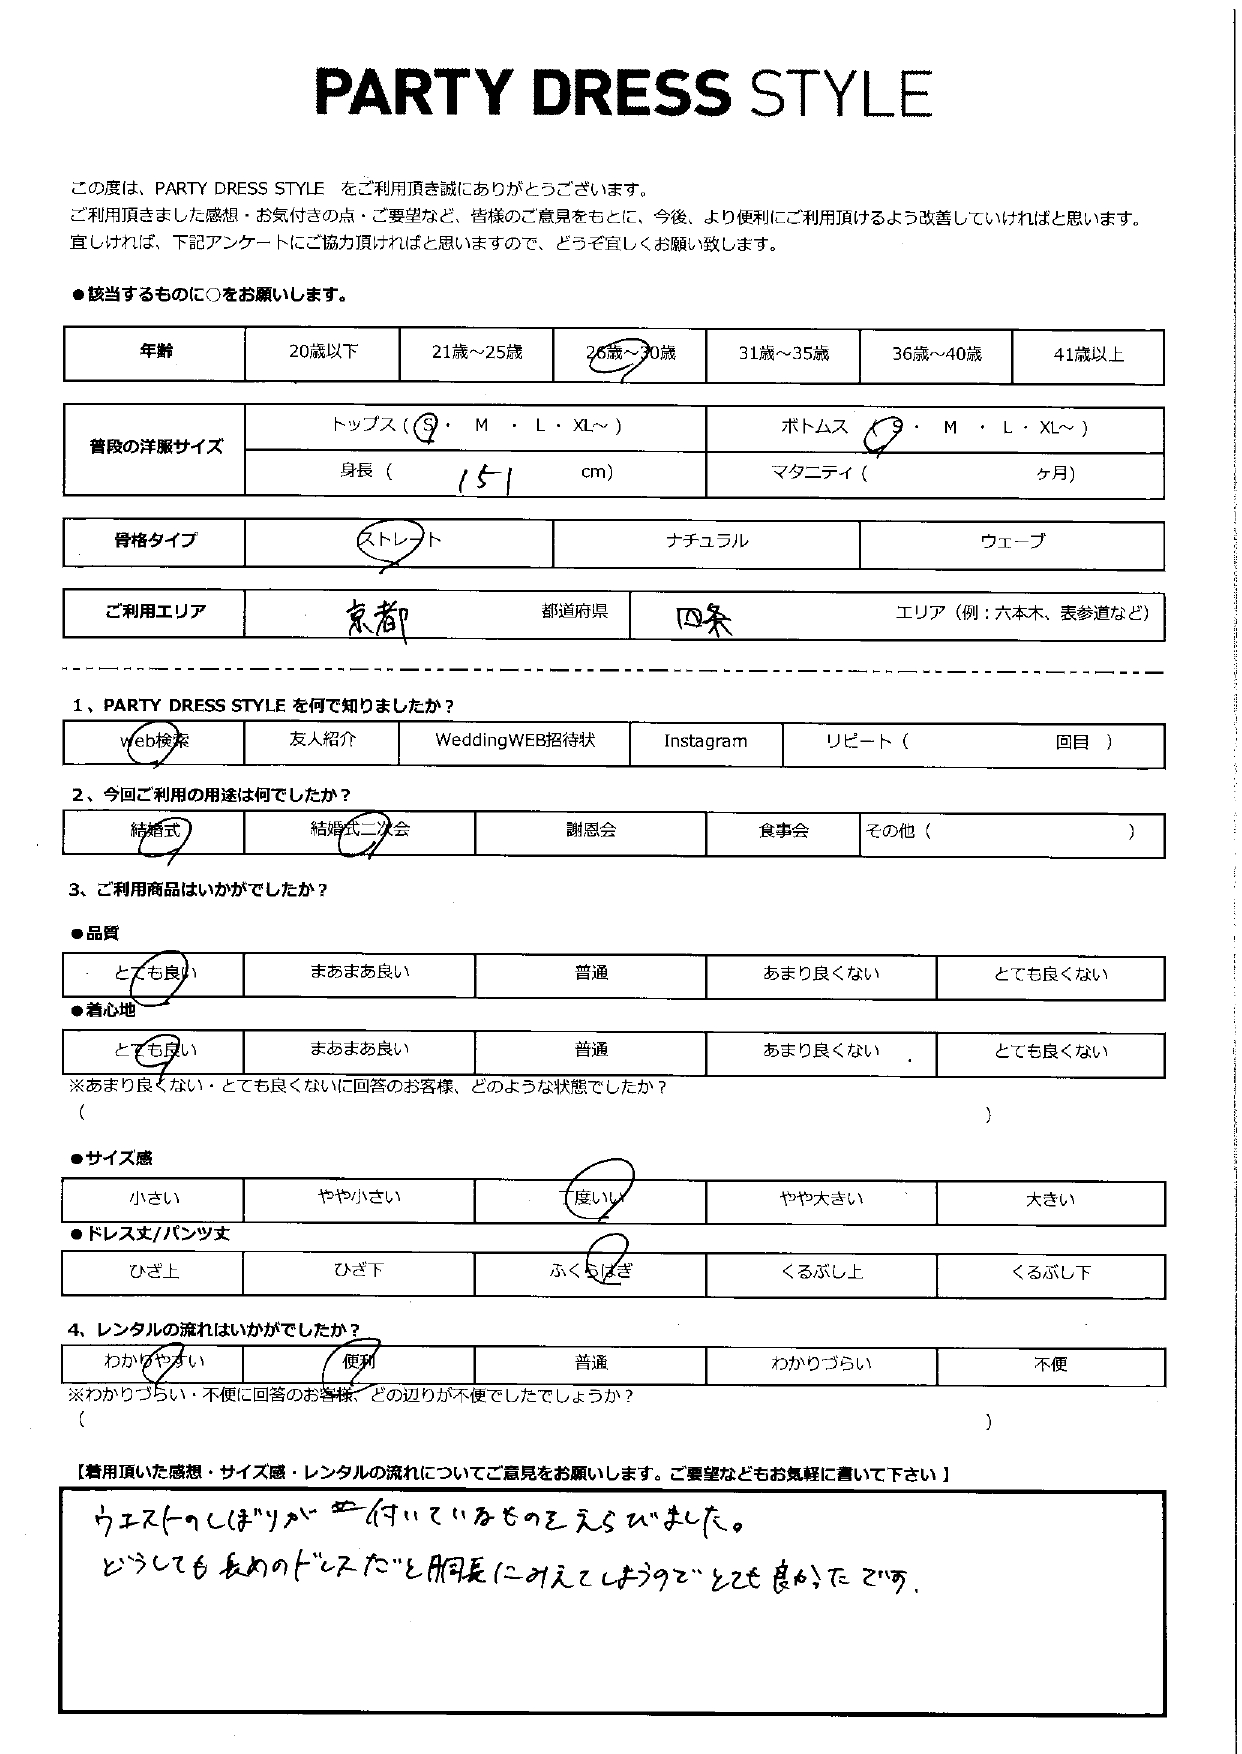 PARTY DRESS STYLE
この度は、PARTY DRESS STYLE をご利用頂き誠にありがとうございます。
ご利用頂きました感想・お気付きの点・ご要望など、皆様のご意見をもとに、今後、より便利にご利用頂けるよう改善していければと思います。
宜しければ、下記アンケートにご協力頂ければと思いますので、どうぞ宜しくお願い致します。
●該当するものに○をお願いします。
年齢 20歳以下 21歳～25歳 26歳～30歳 31歳～35歳 36歳～40歳 41歳以上
普段の洋服サイズ トップス ( S ・ M ・ L ・ XL～ ) ボトムス ( S ・ M ・ L ・ XL～ )
身長 ( 151 cm) マタニティ ( ヶ月)
骨格タイプ ストレート ナチュラル ウェーブ
ご利用エリア 京都 都道府県 四条 エリア（例：六本木、表参道など）
1、PARTY DRESS STYLE を何で知りましたか？
web検索 友人紹介 WeddingWEB招待状 Instagram リピート ( 回目 )
2、今回ご利用の用途は何でしたか？
結婚式 結婚式二次会 謝恩会 食事会 その他 ( )
3、ご利用商品はいかがでしたか？
●品質
とても良い まあまあ良い 普通 あまり良くない とても良くない
●着心地
とても良い まあまあ良い 普通 あまり良くない とても良くない
※あまり良くない・とても良くないに回答のお客様、どのような状態でしたか？
( )
●サイズ感
小さい やや小さい 丁度いい やや大きい 大きい
●ドレス丈/パンツ丈
ひざ上 ひざ下 ふくらはぎ くるぶし上 くるぶし下
4、レンタルの流れはいかがでしたか？
わかりやすい 便利 普通 わかりづらい 不便
※わかりづらい・不便に回答のお客様、どの辺りが不便でしたでしょうか？
( )
【着用頂いた感想・サイズ感・レンタルの流れについてご意見をお願いします。ご要望などもお気軽に書いて下さい】
ウエストのしぼりが 付いているものをえらびました。
どうしても長めのドレスだと胴長にみえてしまうのでとても良かったです.